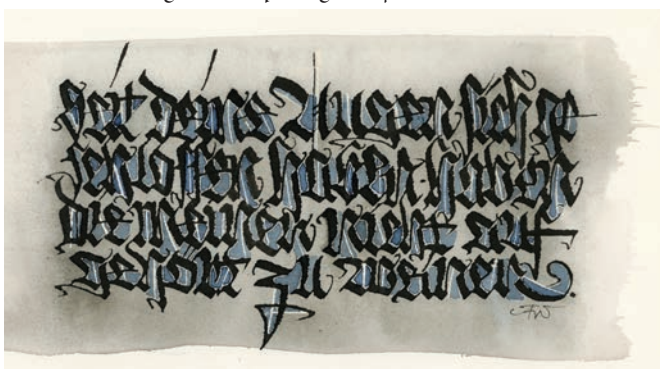 Seit deine Augen sich ge
schlossen haben, haben
die meinen nicht auf
gehört zu weinen.